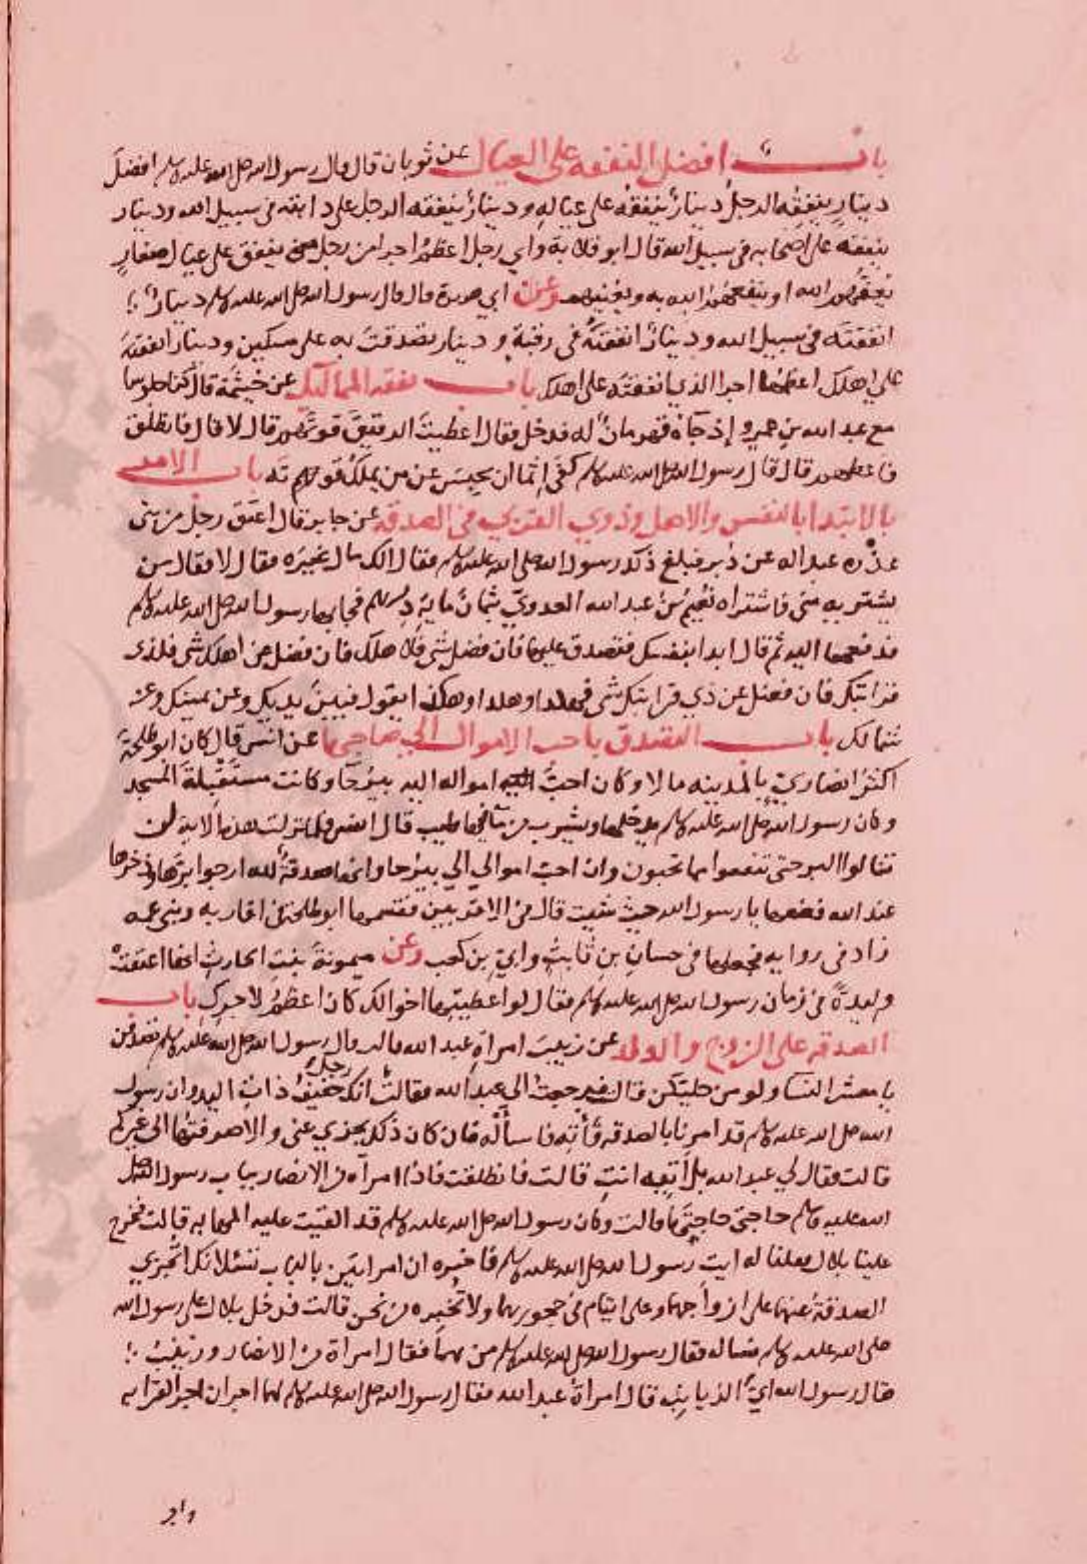 باب افضل النفقه على العيال عن ثوبان قال قال رسول الله صلى الله عليه وسلم افضل
دينار ينفقه الرجل دينار ينفقه على عياله ودينار ينفقه الرجل على دابته في سبيل الله ودينار
ينفقه على اصحابه في سبيل الله قال ابو قلابة واي رجل اعظم اجرا من رجل ينفق على عيال صغار
يعفهم الله او ينفعهم الله به ويغنيهم وعن ابي هريرة قال قال رسول الله صلى الله عليه وسلم دينار
انفقته في سبيل الله ودينار انفقته في رقبة ودينار تصدقت به على مسكين ودينار انفقته
على اهلك اعظمها اجرا الذي انفقته على اهلك باب نفقه المماليك عن خيثمة قال كنا جلوسا
مع عبد الله بن عمرو إذ جآءه قهرمان له فدخل فقال اعطيت الرقيق قوتهم قال لا قال فانطلق
فاعطهم قال قال رسول الله صلى الله عليه وسلم كفى إثما ان يحبس عن من يملك قوته باب الامر
بالابتدا بالنفس والاهل وذوي القربي في الصدقه عن جابر قال اعتق رجل من بني
عذره عبدا له عن دبر فبلغ ذلك رسول الله صلى الله عليه وسلم فقال الك مال غيره فقال لا فقال من
يشتريه مني فاشتراه نعيم بن عبد الله العدوي بثمان ماية درهم فجا بها رسول الله صلى الله عليه وسلم
فدفعها اليه ثم قال ابدا بنفسك فتصدق عليها فان فضل شي فلاهلك فان فضل عن اهلك شي فلذي
قرابتك فان فضل عن ذي قرابتك شي فهكذا وهكذا وهكذا يقول فبين يديك وعن يمينك وعن
شمالك باب التصدق باحب الاموال الي صاحبها عن انس قال كان ابو طلحة
اكثر انصاري بالمدينه مالا وكان احب امواله اليه بيرحآ وكانت مستقبلة المسجد
وكان رسول الله صلى الله عليه وسلم يدخلها ويشرب من مآ فيها طيب قال انس فلما نزلت هذه الاية لن
تنالوا البر حتى تنفقوا مما تحبون وان احب اموالي الي بيرحا وانها صدقة لله ارجوا برها وذخرها
عند الله فضعها يا رسول الله حيث شيت قال في الاقربين فقسمها ابو طلحة في اقاربه وبني عمه
زاد في روايه فجعلها في حسان بن ثابت وابي بن كعب وعن ميمونة بنت الحارث انها اعتقت
وليدة في زمان رسول الله صلى الله عليه وسلم فقال لو اعطيتها اخوالك كان اعظم لاجرك باب
الصدقه على الزوج والولد عن زينب امراة عبد الله قالت قال رسول الله صلى الله عليه وسلم تصدقن
يا معشر النسا ولو من حليكن قالت فرجعت الى عبد الله فقالت انك رجل خفيف ذات اليد وان رسول
الله صلى الله عليه وسلم قد امرنا بالصدقه فأته فاسأله فان كان ذلك يجزي عني والا صرفتها الى غيركم
قالت فقال لي عبد الله بل أتيه انت قالت فانطلقت فاذا امرآه من الانصار بباب رسول الله صلى
الله عليه وسلم حاجتي حاجتها قالت وكان رسول الله صلى الله عليه وسلم قد القيت عليه المهابه قالت فخرج
علينا بلال فقلنا له ايت رسول الله صلى الله عليه وسلم فاخبره ان امراتين بالباب تسئلانك اتجزي
الصدقة عنهما على ازواجهما وعلى ايتام في حجورهما ولا تخبره من نحن قالت فدخل بلال على رسول الله
صلى الله عليه وسلم فساله فقال رسول الله صلى الله عليه وسلم من هما فقال امراة من الانصار وزينب
فقال رسول الله اي الزيانب قال امراة عبد الله فقال رسول الله صلى الله عليه وسلم لهما اجران اجر القرابه
واجر